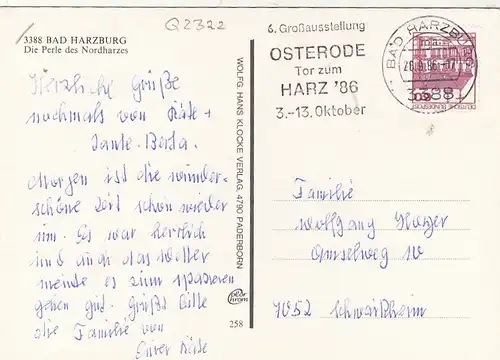 3388 BAD HARZBURG
Die Perle des Nordharzes
Q2322
Herzliche Grüße
nochmals von Käte +
Tante Berta.
Morgen ist die wunder-
schöne Zeit schon wieder
um. Es war herrlich
und auch das Wetter
meinte es zum spazieren
gehen gut. Grüße bitte
die Familie von
Eurer Käte
WOLFG. HANS KLOCKE VERLAG, 4790 PADERBORN
258
6. Großausstellung
OSTERODE
Tor zum
HARZ '86
3.-13. Oktober
BAD HARZBURG
3388
DEUTSCHE BUNDESPOST
Familie
Wolfgang
Amselweg
7052 Schwaikheim